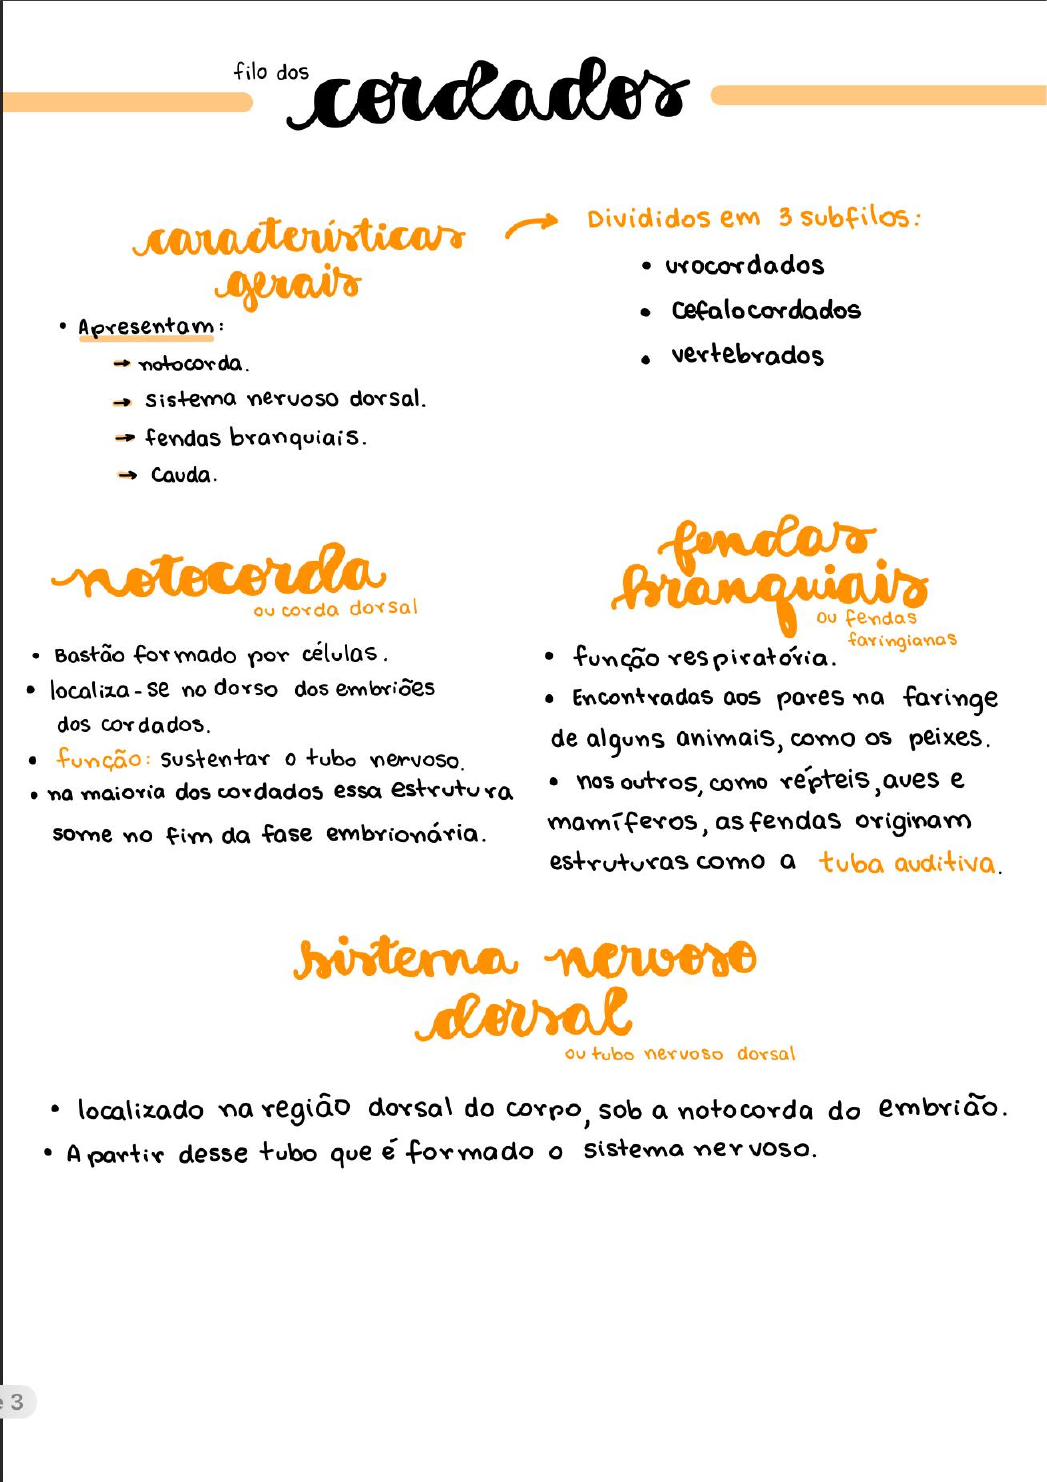 filo dos cordados
características
gerais
• Apresentam:
→ notocorda.
→ sistema nervoso dorsal.
→ fendas branquiais.
→ Cauda.
Divididos em 3 subfilos:
• urocordados
• Cefalocordados
• vertebrados
notocorda
ou corda dorsal
• Bastão formado por células.
• localiza-se no dorso dos embriões
dos cordados.
• função: sustentar o tubo nervoso.
• na maioria dos cordados essa estrutura
some no fim da fase embrionária.
fendas
branquiais
ou fendas
faringianas
• função respiratória.
• Encontradas aos pares na faringe
de alguns animais, como os peixes.
• nos outros, como répteis, aves e
mamíferos, as fendas originam
estruturas como a tuba auditiva.
sistema nervoso
dorsal
ou tubo nervoso dorsal
• localizado na região dorsal do corpo, sob a notocorda do embrião.
• A partir desse tubo que é formado o sistema nervoso.
3